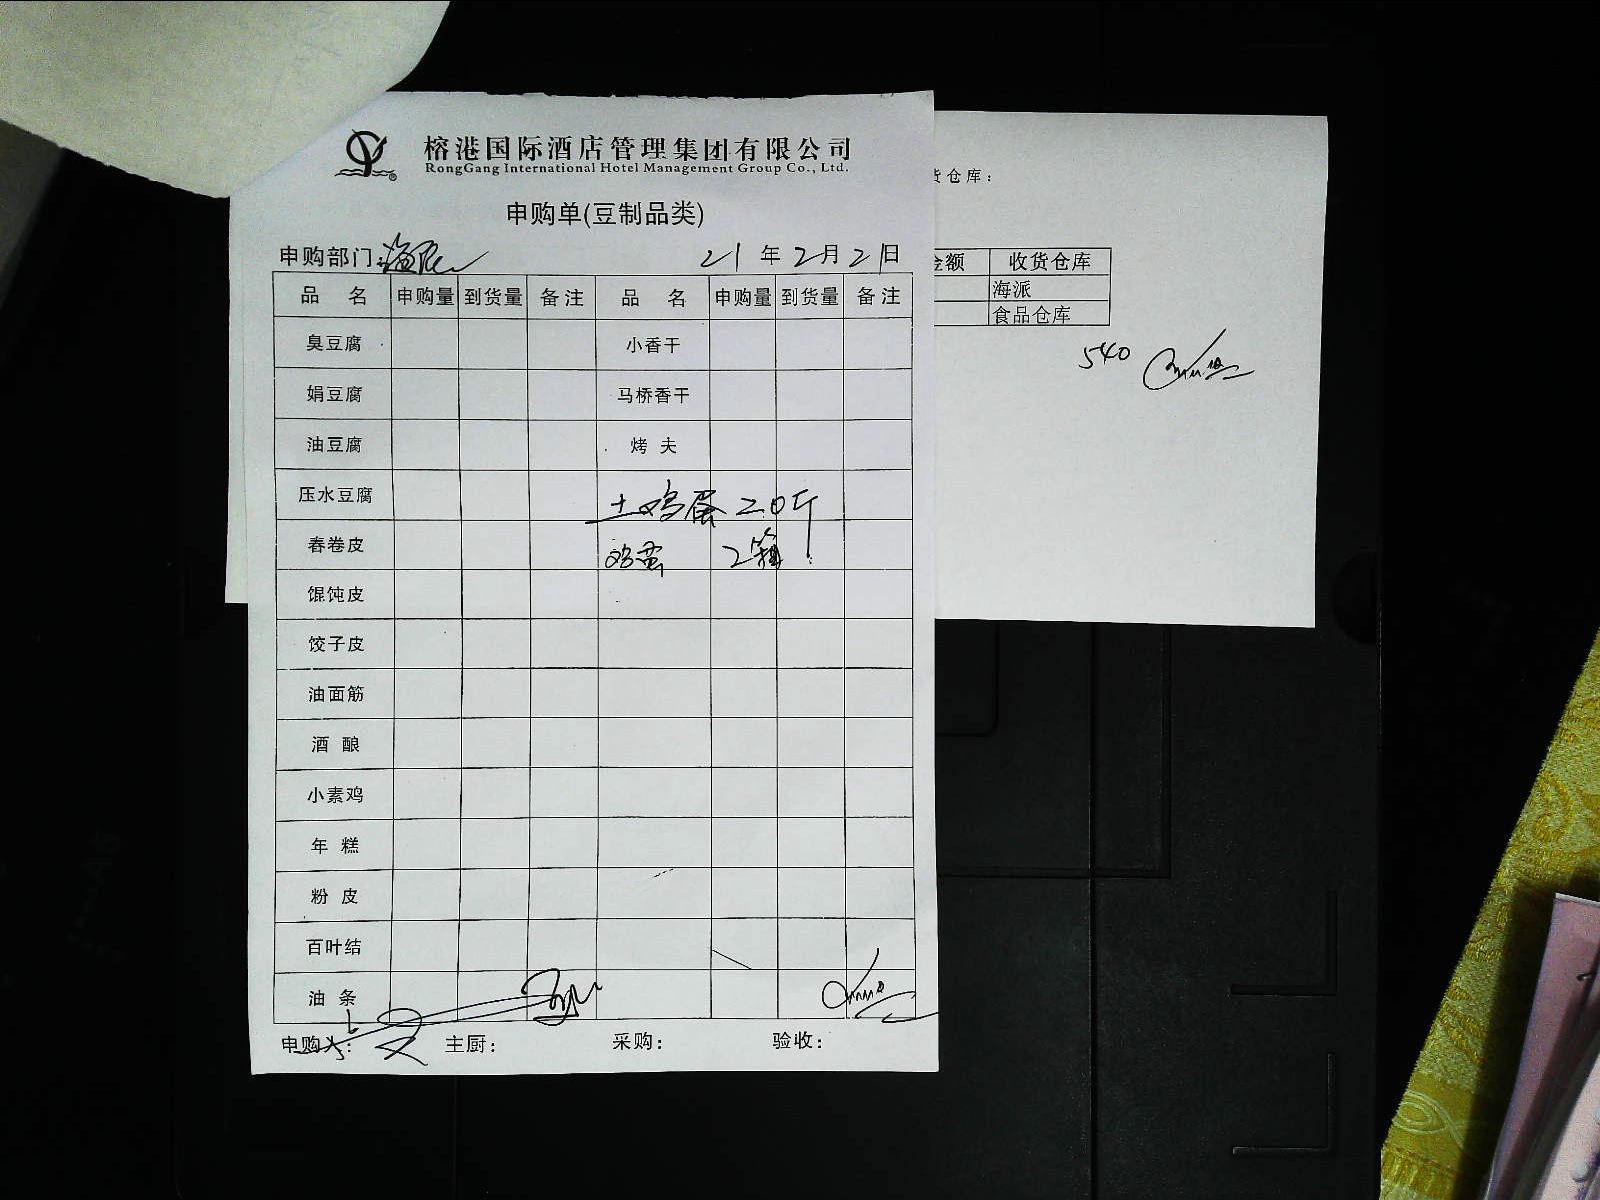 榕港国际酒店管理集团有限公司
RongGang International Hotel Management Group Co., Ltd.
申购单(豆制品类)
申购部门: 海派 21 年 2 月 21 日
品 名 申购量 到货量 备注 品 名 申购量 到货量 备注
臭豆腐 小香干
娟豆腐 马桥香干
油豆腐 烤 夫
压水豆腐 土鸡蛋 20斤
春卷皮 鸡蛋 2箱
馄饨皮
饺子皮
油面筋
酒 酿
小素鸡
年 糕
粉 皮
百叶结
油 条
申购人: 主厨: 采购: 验收:
货仓库:
金额 收货仓库
海派
食品仓库
540